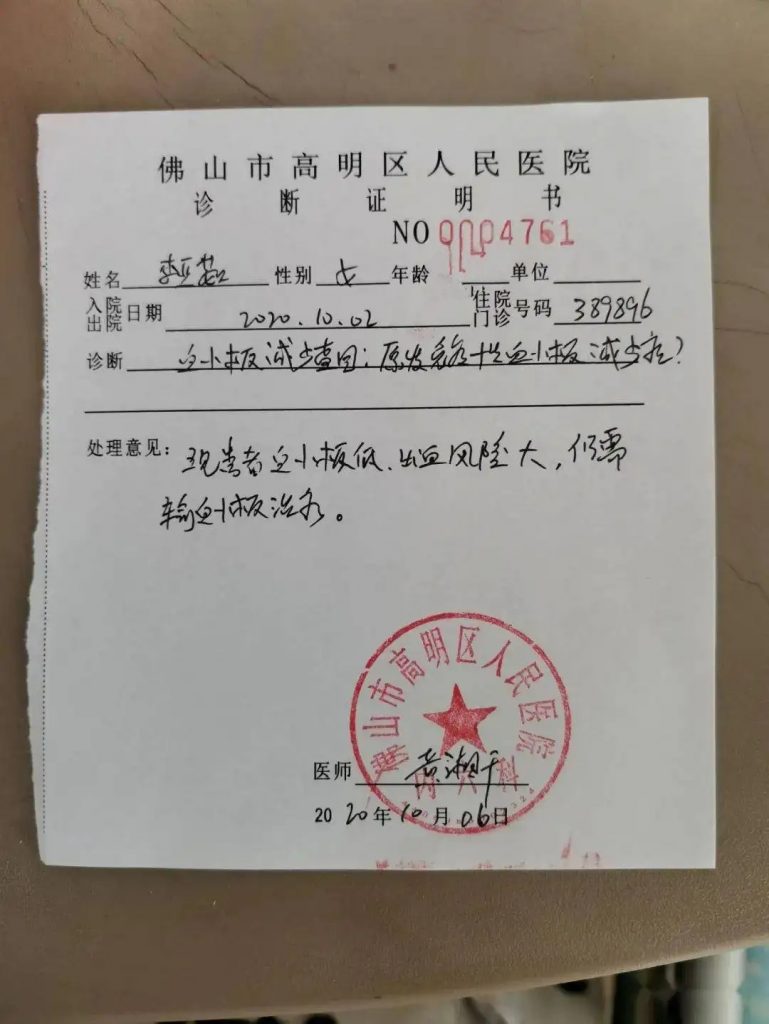 佛山市高明区人民医院
诊断证明书
NO 0004761
姓名 性别 女 年龄 单位
入院出院日期 2020.10.02 住院门诊号码 389896
诊断 血小板减少查因：原发免疫性血小板减少症？
处理意见：现患者血小板低、出血风险大，仍需
输血小板治疗。
佛山市高明区人民医院
医师
2020年10月06日